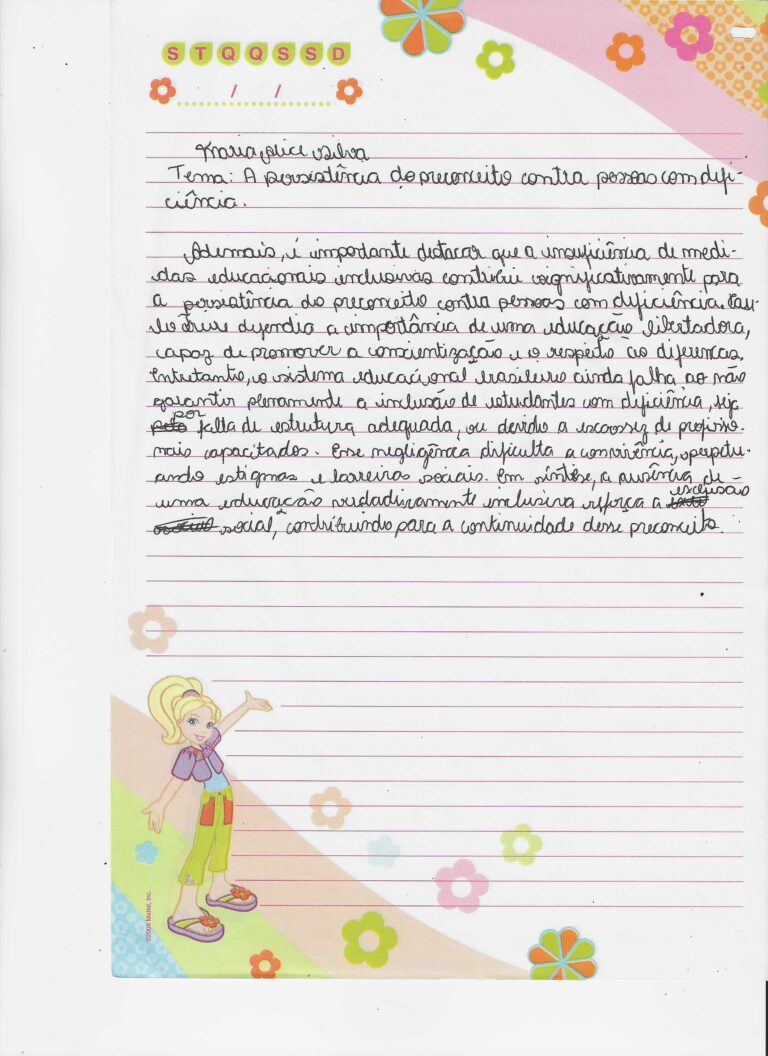 S T Q Q S S D
/ /
Maria Alice Silva
Tema: A persistência do preconceito contra pessoas com defi-
ciência.
Ademais, é importante destacar que a insuficiência de medi-
das educacionais inclusivas contribui significativamente para
a persistência do preconceito contra pessoas com deficiência. Pau-
lo Freire defendia a importância de uma educação libertadora,
capaz de promover a conscientização e o respeito às diferenças.
Entretanto, o sistema educacional brasileiro ainda falha ao não
garantir plenamente a inclusão de estudantes com deficiência, seja
por falta de estrutura adequada, ou devido a escassez de profissio-
nais capacitados. Esse negligência dificulta a convivência, e perpetu-
ando estigmas e barreiras sociais. Em síntese, a ausência de
uma educação verdadeiramente inclusiva reforça a exclusão
social, contribuindo para a continuidade desse preconceito.
©2008 Mattel, Inc.